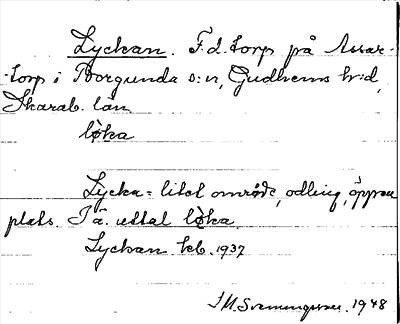 Lyckan. F.d. torp på Assar-
torp i Borgunda s:n, Gudhems h:d,
Skarab. län
lø̀ka
Lycka = litet område, odling, öppen
plats. I ä. uttal lø̀ka.
Lyckan kb. 1937
I M. Svenungsson. 1948